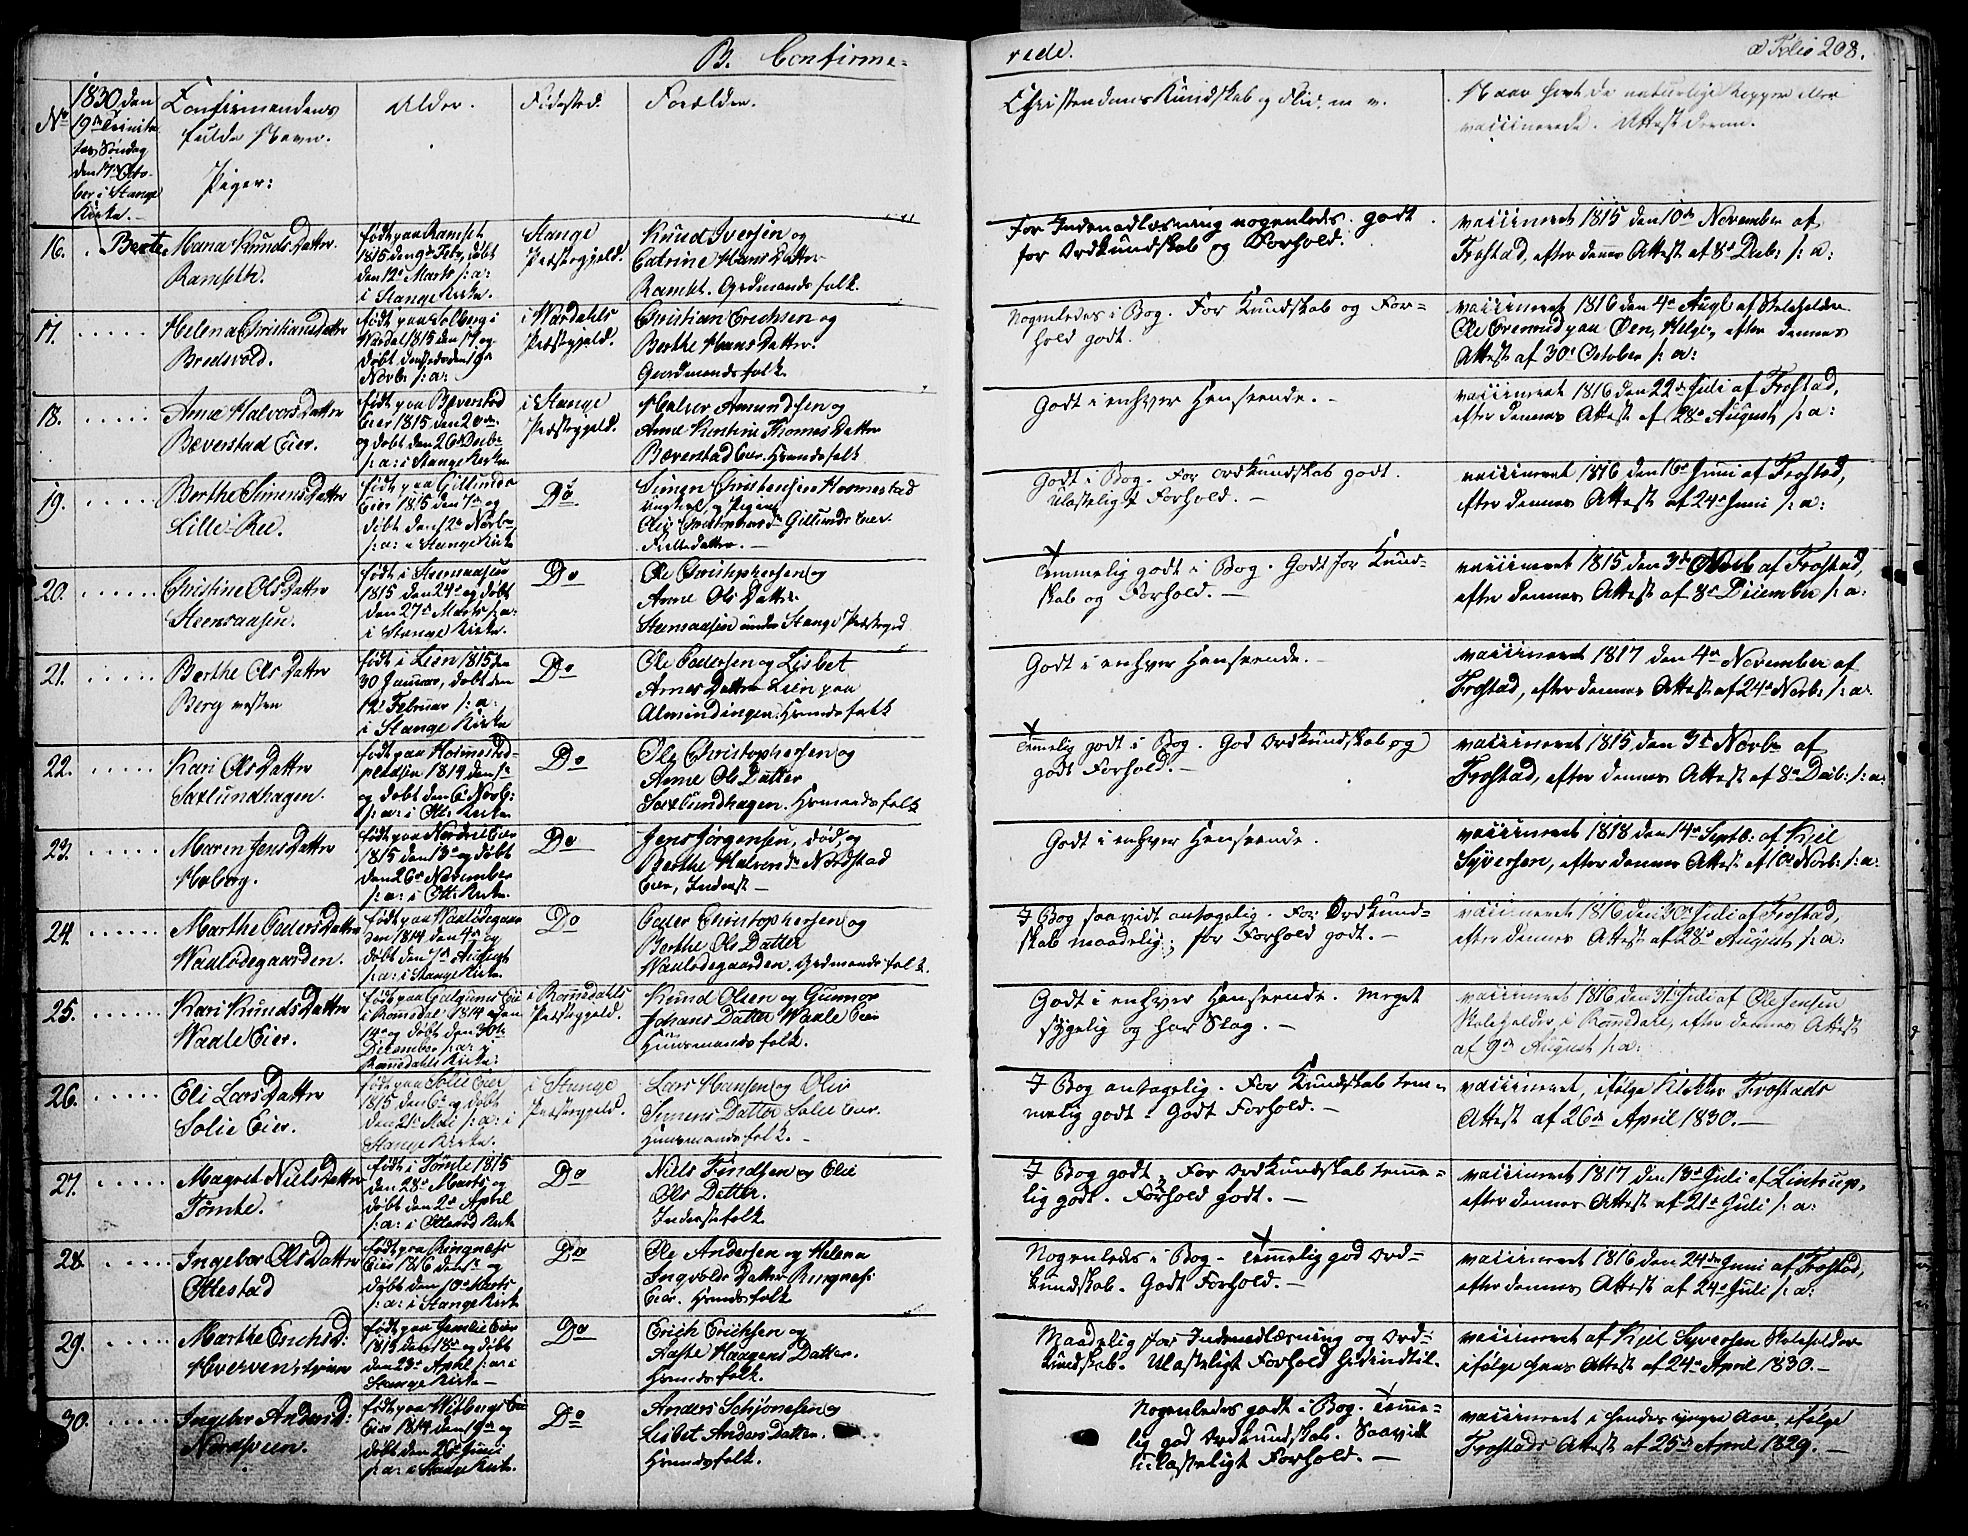 B. Confirme-
rede.
a Folio 208.
No
1830 den
19de Trinita-
tis Søndag
den 17de Octo-
ber i Stange
Kirke.
Confirmandens
fulde Navn.
Piger:
Alder.
Fødested.
Forældre.
Christendoms Kundskab og Flid. m. v.
Naar havt de naturlige Kopper eller
vaccinerede. Attest derom.
16.
Berte Mana Knuds Datter
Ramseth.
født paa Ramset
1815 den 9de Feb, døbt
den 12te Marts s: a:
i Stange Kirke.
Stange
Præstegjeld.
Knud Iversen og
Catrine Hans Datter
Ramset. Grdmandsfolk.
For Indenadlæsning nogenleds. godt
for Ordkundskab og Forhold.
vaccineret 1815 den 10de November af
Frostad, efter dennes Attest af 8de Decb: s: a:
17.
Helena Christians Datter
Bredsvold.
født paa Solberg i
Wardal 1815 den 17 og
Novb: s: a:
i Wardahls
Præstegjeld.
Christian Erichsen og
Berthe Hans Datter
Gaardmandsfolk
Nogenledes i Bog. For Kundskab og For-
hold godt.
vaccineret 1816 den 4de Augt af Skoleholder
Ole Evensrud paa Øen, Helge, efter dennes
Attest af 30te October s: a:
18.
Anne Halvors Datter
Bæverstad Eier.
født paa Bæverstad
Eier 1815 den 20de
og døbt den 26de Decbr
s: a: i Stange Kirke
i Stange
Præstegjeld.
Halvor Amundsen og
Anne Kirstine Thomes Datter
Bæverstad Eier. Hmandsfolk
Godt i enhver Henseende. -
vaccineret 1816 den 22de Juli af Frostad,
efter dennes Attest af 28de August s: a:
19.
Berthe Simens Datter
Lille-Ree.
født paa Gillunds
Eier 1815 den 7de og
døbt den 12te Novb
s: a: i Stange Kirke
Do
Simen Christensen Hosmestad
ungkarl, og Pigen
Olia Christophersd Gillunds Eier.
Godt i Bog. For Ordkundskab godt.
Ulasteligt Forhold. -
vaccineret 1816 den 16de Juni af Frostad,
efter dennes Attest af 24de Juni s: a:
20.
Christine Ols Datter
Steensaasen.
født i Steensaasen
1815 den 24de og døbt
den 27de Marts s: a:
i Stange Kirke.
Do
Ole Christophersen og
Anne Ols Datter
Steensaasen under Stange Præstegd
Temmelig godt i Bog. Godt for Kund-
skab og Forhold. -
vaccineret 1815 den 3de Novb af Frostad,
efter dennes Attest af 8de December s: a:
21.
Berthe Ols Datter
Berg vesten
født i Lien 1815 den
30 Januar, døbt den
12te Februar s: a:
i Stange Kirke
Do
Ole Pedersen og Lisbet
Arnes Datter Lien paa
Almindingen. Hmandsfolk
Godt i enhver Henseende. -
vaccineret 1817 den 4de November af
Frostad, efter dennes Attest af 24de Novb: s: a:
22.
Kari Ols Datter
Saxlundhagen.
født paa Hosmestad-
1814 den 1te
og døbt den 6te Novb:
s: a: i Ott: Kirke
Do
Ole Christophersen og
Anne Ols Datter
Saxlundhagen. Hsmandsfolk
Temmelig godt i Bog. God Ordkundskab og
godt Forhold. -
vaccineret 1815 den 3de Novb af
Frostad, efter dennes Attest af 8de Decb: s: a:
23.
Maren Jens Datter
Hoberg.
født paa Nordset Eier
1815 den 13de og døbt
den 26de November
s: a: i Ott: Kirke.
Do
Jens Jørgensen, død, og
Berthe Halvorsdr Nordstad
Eier, Inderst -
Godt i enhver Henseende.
vaccineret 1818 den 14de Septb: af Kiel
Syversen, efter dennes Attest af 10de Novb: s: a:
24.
Marthe Peders Datter
Waalødegaarden.
født paa Waalødegaar-
den 1814 den 4de og
døbt den 7de August
s: a: i Stange Kirke.
Do
Peder Christophersen og
Berthe Ols Datter
Waalødegaarden. Grdmandsfolk.
I Bog saavidt antagelig. For Ordkund-
skab maadelig; for Forhold godt. -
vaccineret 1816 den 30te Juli af Frostad,
efter dennes Attest af 28de August s: a:
25.
Kari Knuds Datter
Waale Eier.
i Romsdal 1814 den
14de og døbt den 30te
December s: a: i
Romedals Kirke:
i Romedahls
Præstegjeld.
Knud Olsen og Gunnor
Johans Datter Waale Eier
Huusmandsfolk.
Godt i enhver Henseende. Meget
sygelig og har Slag. -
vaccineret 1816 den 31te Juli af Ole Jensen
Skoleholder, i Romedal, efter dennes Attest
af 9de August s: a:
26.
Eli Lars Datter
Solie Eier.
født paa Solie Eier
1815 den 6te og døbt
den 21de Mai s: a: i
Stange Kirke.
i Stange
Præstegjeld.
Lars Hansen og Oliv
Simens Datter Solie Eier.
Huusmandsfolk. -
I Bog antagelig. For Kundskab tem-
melig godt. Godt Forhold. -
vaccineret, ifølge Klokker Frostads
Attest af 26de April 1830. -
27.
Magret Niels Datter
Tomte.
født i Tomte 1815
den 28de Marts og
døbt den 2de April
s: a: i Ottestad Kirke
Do
Niels Findsen og Elie
Ols Datter.
Inderstefolk
I Bog godt; For Ordkundskab temme-
lig godt. Forhold godt. -
vaccineret 1817 den 13de Juli af Lintrup,
efter dennes Attest af 21de Juli s: a:
28.
Ingebor Ols Datter
Ottestad
født paa Ringnæs
Eier 1816 den 1te og
døbt den 10de Marts
s: a: i Stange Kirke
Do
Ole Andersen og Helena
Ingvolds Datter Ringnæs
Eier. Hmandsfolk
Nogenleds i Bog. Temmelig god Ord-
kundskab. Godt Forhold. -
vaccineret 1816 den 24de Juni af Frostad,
efter dennes Attest af 24de Juli s: a:
29.
Marthe Erichsd:
Hverven,
Eier
1815 den 18de og døbt
den 23de April s: a: i
Stange Kirke -
Do
Erich Erichsen og
Aaste Haagens Datter.
Hmandsfolk.
Maadelig for Indenadlæsning og Ord-
kundskab. Ulasteligt Forhold hidindtil.
vaccineret af Kiel Syversen Skoleholder
ifølge hans Attest af 24de April 1830. -
30.
Ingebor Andersd:
Nordsveen.
født paa Wiibergs
Eier 1814 den 19de og
døbt den 26de Juni
s: a: i Stange Kirke.
Do
Anders Schjønesen og
Lisbet Anders Datter.
Hmandsfolk.
Nogenledes godt i Bog. Temme-
lig god Ordkundskab. Saavidt
Ulasteligt Forhold. -
vaccineret i hendes yngre Aar, ifølge
Frostads Attest af 25de April 1829. -